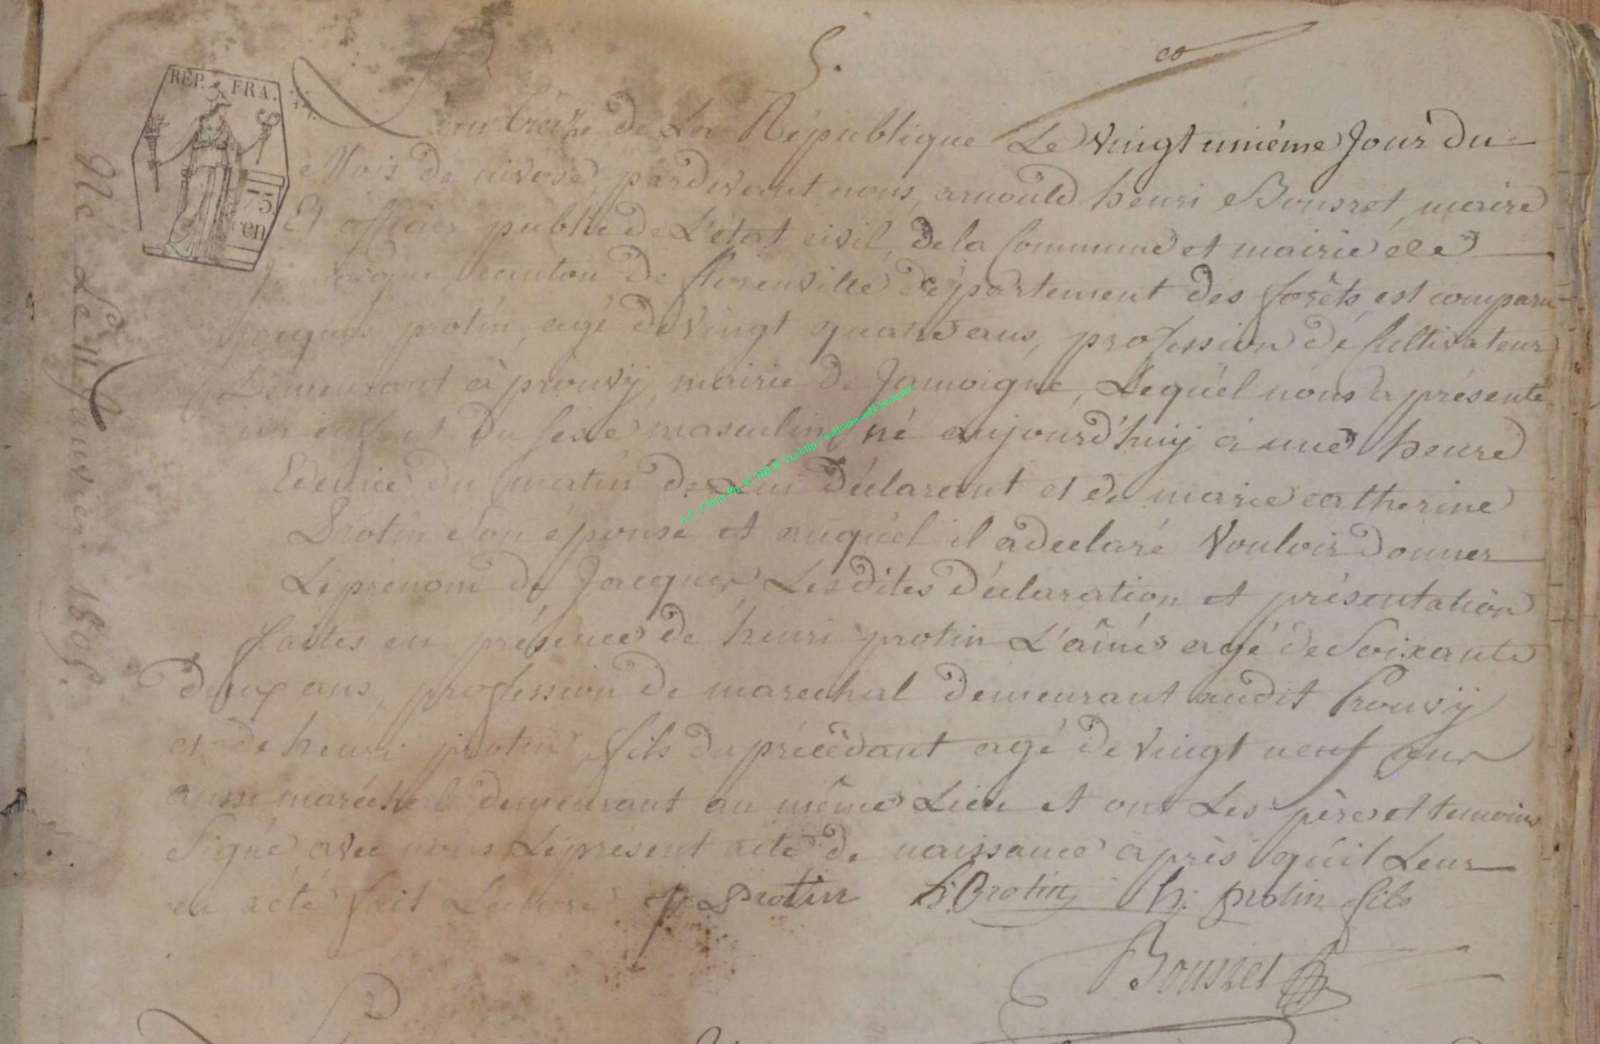 5.
REP. FRA.
75
cen
Né Le 11 Janvier 1805.
L'an treize de La République Le vingt unième Jour du
Mois de nivose, pardevant nous, arnould henri Bousret, maire
Et officier public de L'état civil, de la Commune et mairie de
canton de florenville département des forêts, est comparu
jacques protin, agé de vingt quatre ans, profession de Cultivateur
Demeurant à prouvÿ, mairie de Jamoigne, Lequel nous a présenté
un enfant du sexe masculin né aujourd'huÿ à une heure
Et demie du matin de Lui déclarant et de marie catherine
Protin son épouse et auquel il a déclaré Vouloir donner
Le prénom de Jacques, Les dites déclaration et présentation
faites en présence de henri protin L'aîné agé de soixante
deux ans, profession de marechal demeurant audit Prouvÿ
et de henri protin, fils du précèdant agé de vingt neuf ans
aussi maréchal demeurant au même Lieu et ont Les père et temoins
Signé avec nous Le présent acte de naissance après qu'il Leur
en a été fait Lecture. J. Protin H. Protin h. protin fils
Bousret